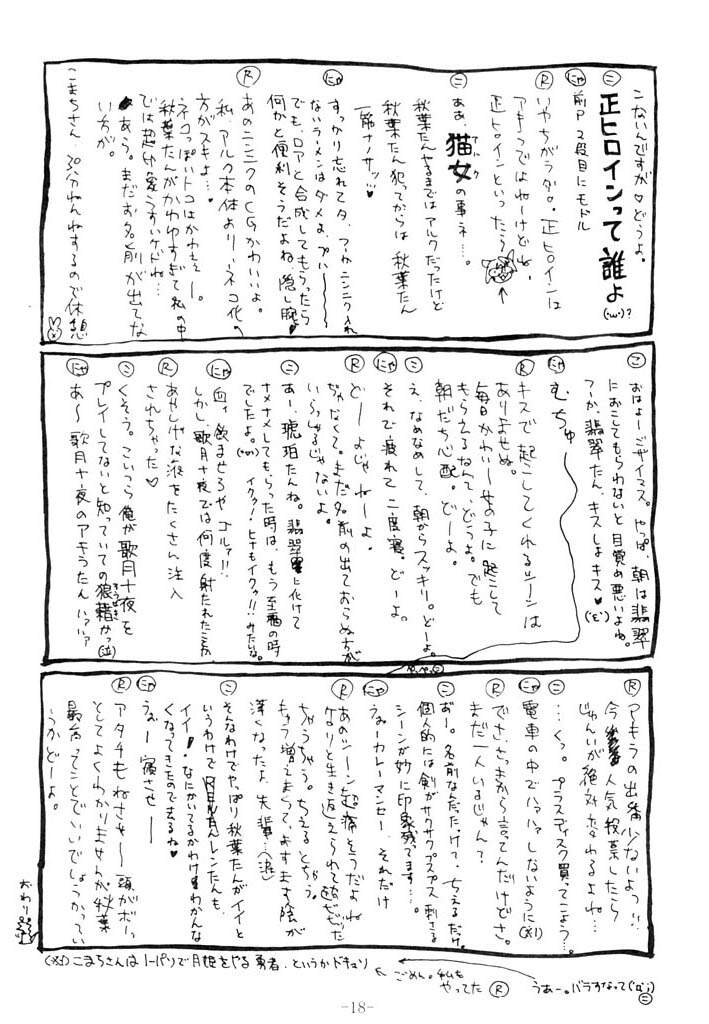 こないんですが♡どうよ。
㋥ 正ヒロインって誰よ(·ω·)?
㋥ャ 前P2段目にモドル
Ⓡ いやちがうダロ。正ヒロインは
アキラつではねーけどね。
正ヒロインといったら
㋥ ああ、猫女の事ネ…。
アルク
秋葉たんやるまではアルクだったけど
秋葉たん犯ってからは秋葉たん
一筋ナノサッ…♥
にゃ すっかり忘れてタ、
ないラーメンはダメよ、プハ〜〜
でも、ロアと合成してもらったら
何かと便利そうだよね隠し腕♥
Ⓡ あのニンニクのCGかわいいよ。
私、アルク本体より、ネコ化の
方がスキよ…♥
ネコっぽいトコはかわえぇー。
秋葉たんがかわゆすぎて私の中
では超印象うすいケドね…
あう。まだお名前が出てな
い方が。
こまちさん、30分ねんねするので休憩
㋙ おはよーゴザイマス。やっぱ、朝は翡翠
におこしてもらわないと目覚め悪いよね。
つーか、翡翠たん、キスしよキス♥('ε')
にゃ むちゅ
Ⓡ キスで起こしてくれるシーンは
ありませぬ。
毎日かわいー女の子に起こして
もらえるなんて、どうよ。でも
朝だち心配。どーよ。
㋙ え、なめなめして、朝からスッキリ。どーよ。
それで疲れて二度寝。どーよ。
にゃ どーよじゃねーよ。
Ⓡ ぢゃなくて。まだ名前の出ておらぬ方が
いらっしゃるじゃないよ。
㋥ あー、琥珀たんね。翡翠に化けて
ナメナメしてもらった時は、もう至福の時
でしたよ。(·∀·)イクッ!ヒデもイクッ!!みたいな。
にゃ 血ィ飲ませろやゴルァ!!
しかし、歌月十夜では何度射たれたことか
Ⓡ あやしげな液をたくさん注入
されちゃった♡
㋥ くそう。こいつら俺が歌月十夜を
プレイしてないと知っていての狼藉かっ(泣)
ろうぜき
にゃ あ〜歌月十夜のアキラたんハァハァ
Ⓡ アキラの出番少ないよっ!!
今後人気投票したら
じゅんいが絶対変わるよね…
㋥ …くっ。プラスディスク買ってこよう…。
にゃ 電車の中でハァハァしないように(※1)
Ⓡ でさ、さっきから言ってんだけどさ。
まだ一人いるじゃん?
㋥ あー。名前なんだったっけて、ちえるだけ。
個人的には剣がサクサクプスプス刺さる
シーンが妙に印象残でます…。
にゃ うぁーカレーマンセーそれだけ
Ⓡ あのシーン超痛そうだよね
ケロリと生き返えられて超びびった
ちゃうちゃう。ちえるとちゃう。
キャラ増えまくって、ますます陰が
深くなったよ、先輩…(涙)
㋥ そんなわけでやっぱり秋葉たんがイイと
いうわけで レンたんも、
イイ!なにかいてるかわけわかんな
くなってきたので去るね♥
にゃ うぉー寝させー
Ⓡ アタチもねさせ〜頭がボーッ
としてよくわかりませんが、秋葉
最高ってことでいいでしょうかってい
うかどーよ。
おわり
(※1)こまちさんはノーパソで月姫をやる勇者、というかドキュソ
←ごめん。私も
やってた Ⓡ
うあー。バラすなって(°Д°;) ㋥
-18-